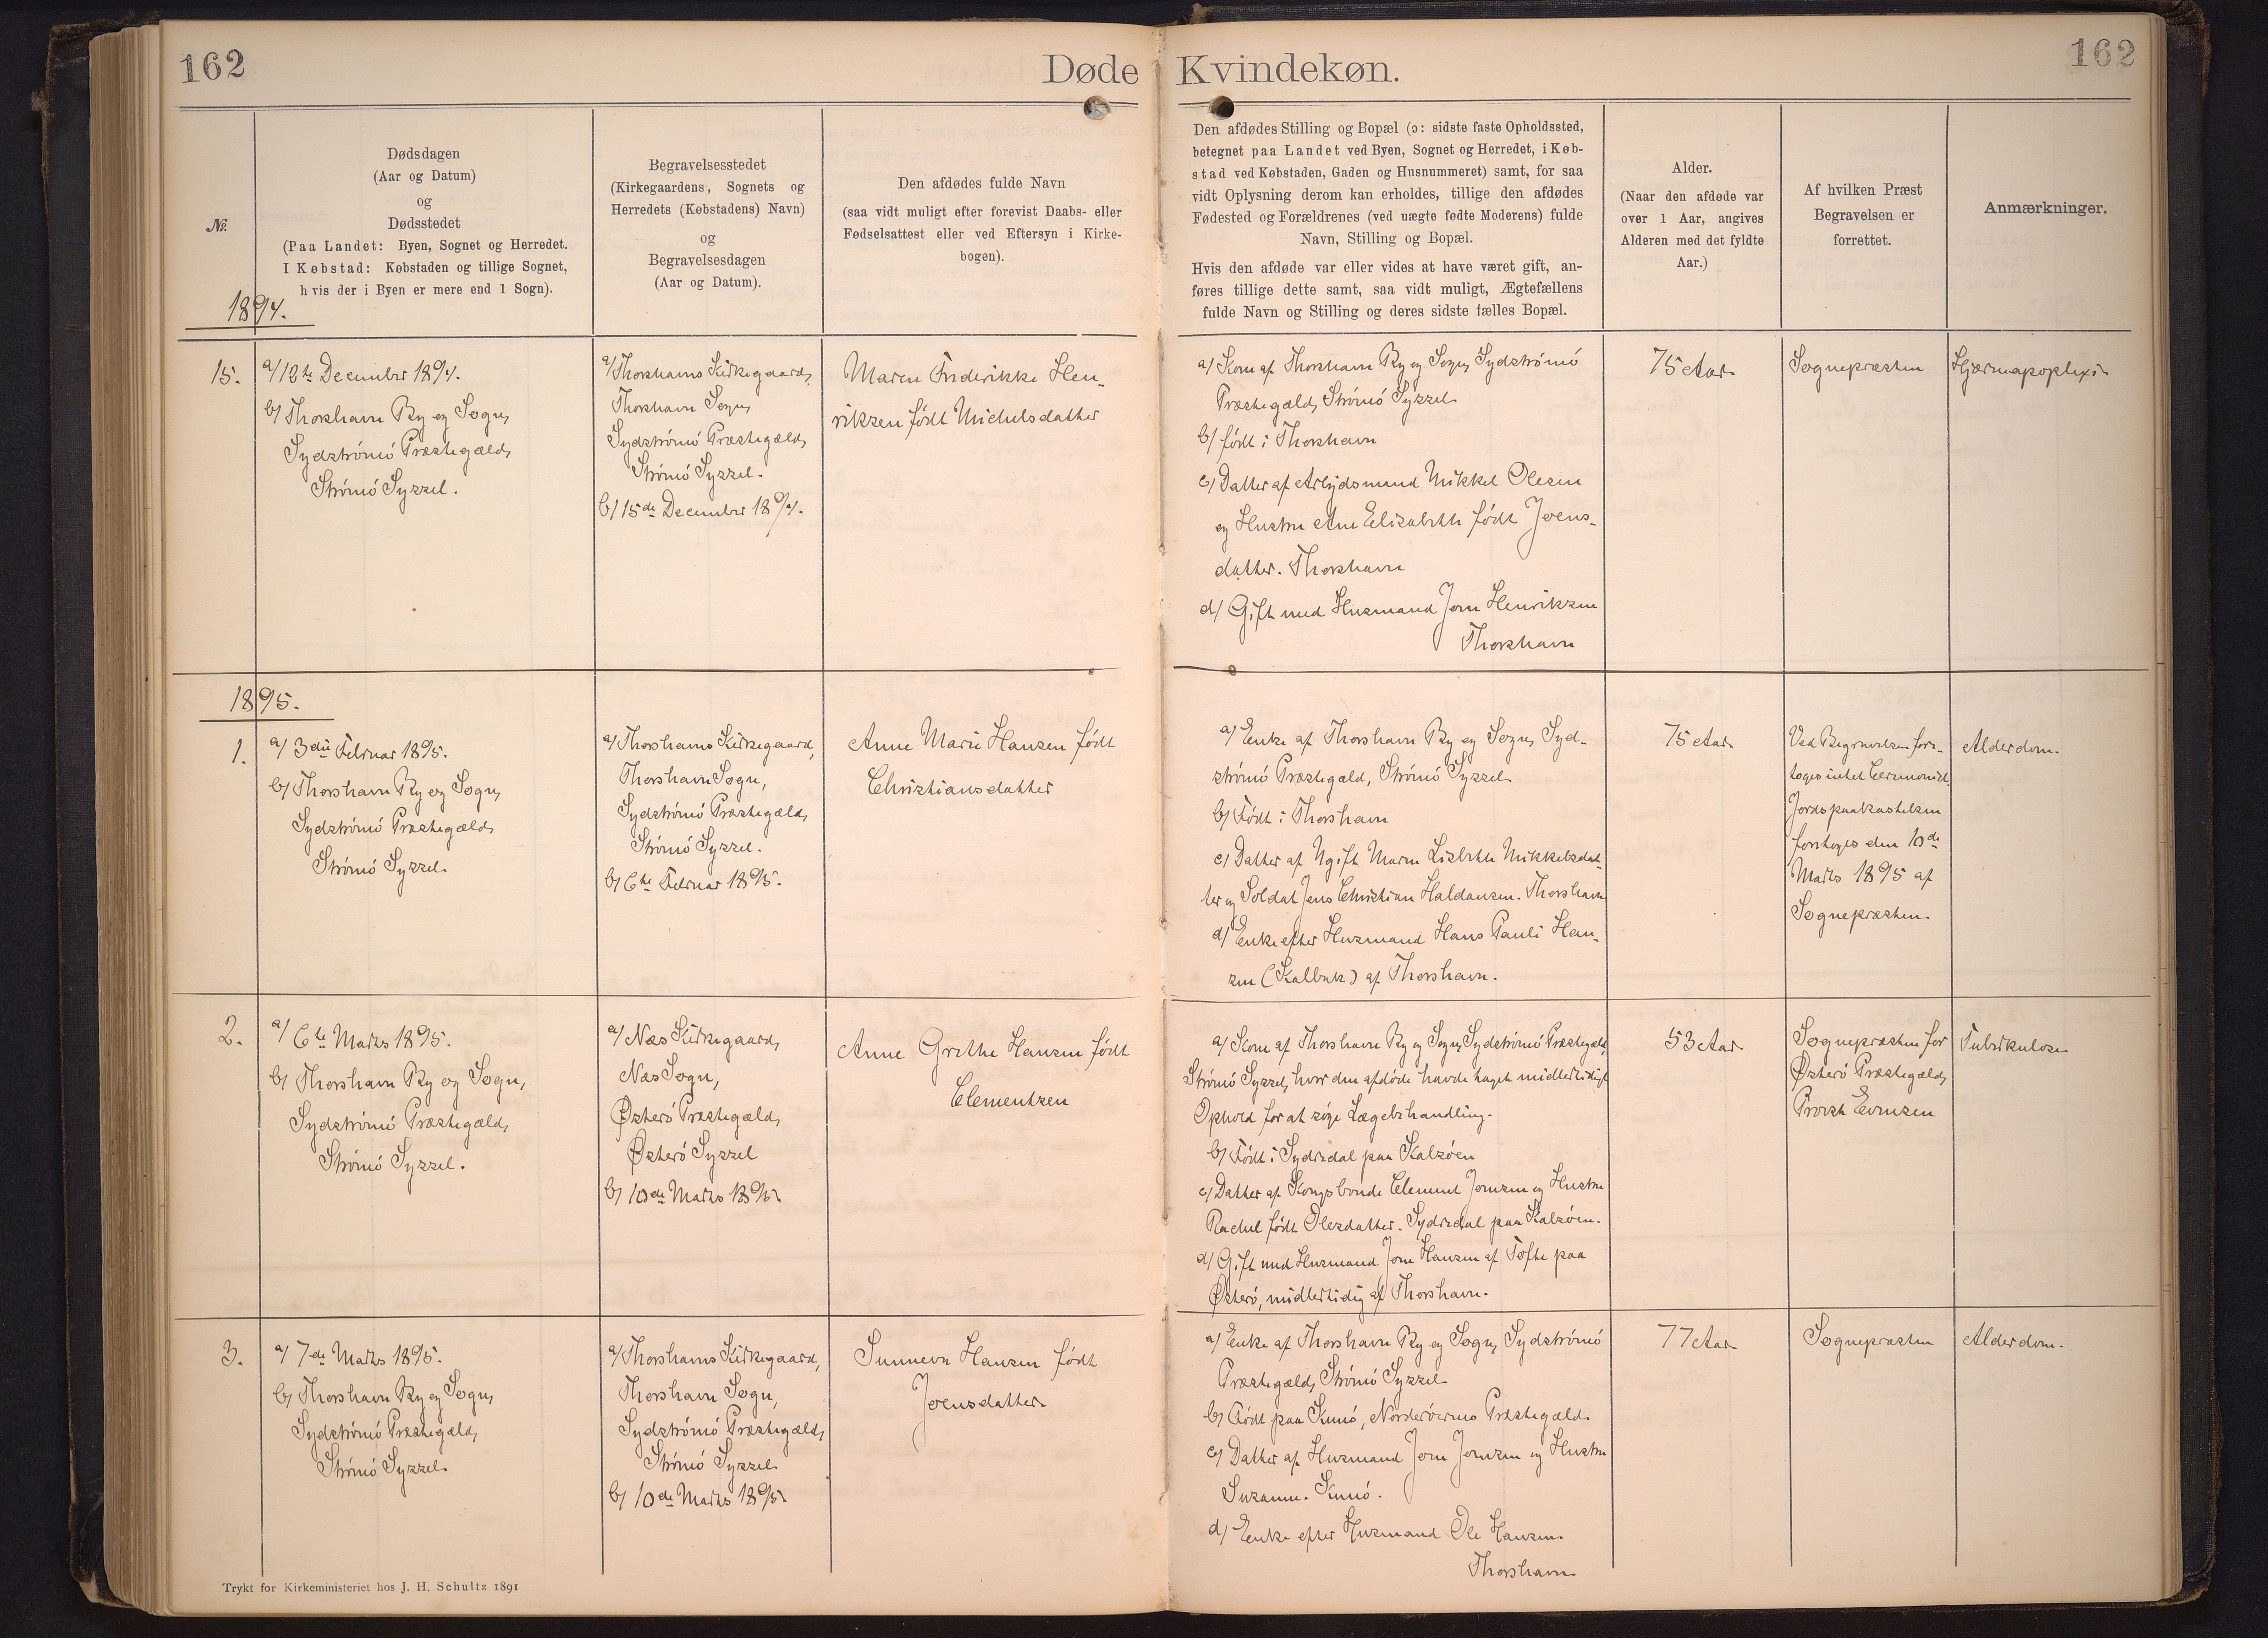 162
Døde Kvindekøn.
162
№.
Dødsdagen
(Aar og Datum)
og
Dødsstedet
(Paa Landet: Byen, Sognet og Herredet.
I Købstad: Købstaden og tillige Sognet,
hvis der i Byen er mere end 1 Sogn).
Begravelsesstedet
(Kirkegaardens, Sognets og
Herredets (Købstadens) Navn)
og
Begravelsesdagen
(Aar og Datum).
Den afdødes fulde Navn
(saa vidt muligt efter forevist Daabs- eller
Fødselsattest eller ved Eftersyn i Kirke-
bogen).
Den afdødes Stilling og Bopæl (ɔ: sidste faste Opholdssted,
betegnet paa Landet ved Byen, Sognet og Herredet, i Køb-
stad ved Købstaden, Gaden og Husnummeret) samt, for saa
vidt Oplysning derom kan erholdes, tillige den afdødes
Fødested og Forældrenes (ved uægte fødte Moderens) fulde
Navn, Stilling og Bopæl.
Hvis den afdøde var eller vides at have været gift, an-
føres tillige dette samt, saa vidt muligt, Ægtefællens
fulde Navn og Stilling og deres sidste fælles Bopæl.
Alder.
(Naar den afdøde var
over 1 Aar, angives
Alderen med det fyldte
Aar.)
Af hvilken Præst
Begravelsen er
forrettet.
Anmærkninger.
1894.
15.
a/ 12te December 1894.
b/ Thorshavn By og Sogn,
Sydstrømö Præstegæld,
Strömö Syssel.
a/ Thorshavns Kirkegaard,
Thorshavn Sogn,
Sydströmö Præstegæld,
Strömö Syssel.
b/ 15de December 1894.
Maren Frederikke Hen-
riksen født Michelsdatter
a/ Kone af Thorshavn By og Sogn, Sydströmö
Præstegæld, Strömö Syssel
b/ født i Thorshavn
c/ Datter af Arbejdsmand Mikkel Olesen
og Hustru Ane Elisabeth født Joens-
datter. Thorshavn
d/ Gift med Husmand Joen Henriksen
Thorshavn
75 Aar
Sognepræsten
Hjærneapoplexi
1895.
1.
a/ 3die Februar 1895.
b/ Thorshavn By og Sogn,
Sydströmö Præstegæld,
Strömö Syssel.
a/ Thorshavns Kirkegaard,
Thorshavn Sogn,
Sydströmö Præstegæld,
Strömö Syssel.
b/ 6te Februar 1895.
Anne Marie Hansen født
Christiansdatter
a/ Enke af Thorshavn By og Sogn, Syd-
strömö Præstegæld, Strömö Syssel
b/ Født i Thorshavn
c/ Datter af Ugift Maren Lisbeth Mikkelsdat-
ter og Soldat Jens Christian Haldansen. Thorshavn
d/ Enke efter Husmand Hans Pauli Han-
sen (Kalbak) af Thorshavn.
75 Aar
Ved Begravelsen fore-
toges intet Ceremoniel.
Jordspaakastelsen
foretoges den 10de
Marts 1895 af
Sognepræsten.
Alderdom.
2.
a/ 6te Marts 1895.
b/ Thorshavn By og Sogn,
Sydströmö Præstegæld,
Strömö Syssel.
a/ Næs Kirkegaard,
Næs Sogn,
Østerö Præstegæld,
Østerö Syssel
b/ 10de Marts 1895
Anne Grethe Hansen født
Clementsen
a/ Kone af Thorshavn By og Sogn, Sydströmö Præstegæld,
Strömö Syssel, hvor den afdøde havde taget midlertidigt
Ophold for at søge Lægebehandling.
b/ Født i Sydredal paa Kalsöen
c/ Datter af Kongsbonde Clement Joensen og Hustru
Rachel født Olesdatter. Sydredal paa Kalsöen.
d/ Gift med Husmand Joen Hansen af Tofte paa
Østerö, midlertidig af Thorshavn.
53 Aar
Sognepræsten for
Østerö Præstegæld,
Provst Evensen
Tuberkulose
3.
a/ 7de Marts 1895.
b/ Thorshavn By og Sogn,
Sydströmö Præstegæld,
Strömö Syssel.
a/ Thorshavns Kirkegaard,
Thorshavn Sogn,
Sydströmö Præstegæld,
Strömö Syssel
b/ 10de Marts 1895
Sunneva Hansen født
Joensdatter
a/ Enke af Thorshavn By og Sogn, Sydströmö
Præstegæld, Strömö Syssel
b/ Født paa Kunö, Norderöernes Præstegæld.
c/ Datter af Husmand Joen Joensen og Hustru
Susanne. Kunö.
d/ Enke efter Husmand Ole Hansen.
Thorshavn
77 Aar
Sognepræsten
Alderdom.
Trykt for Kirkeministeriet hos J. H. Schultz 1891